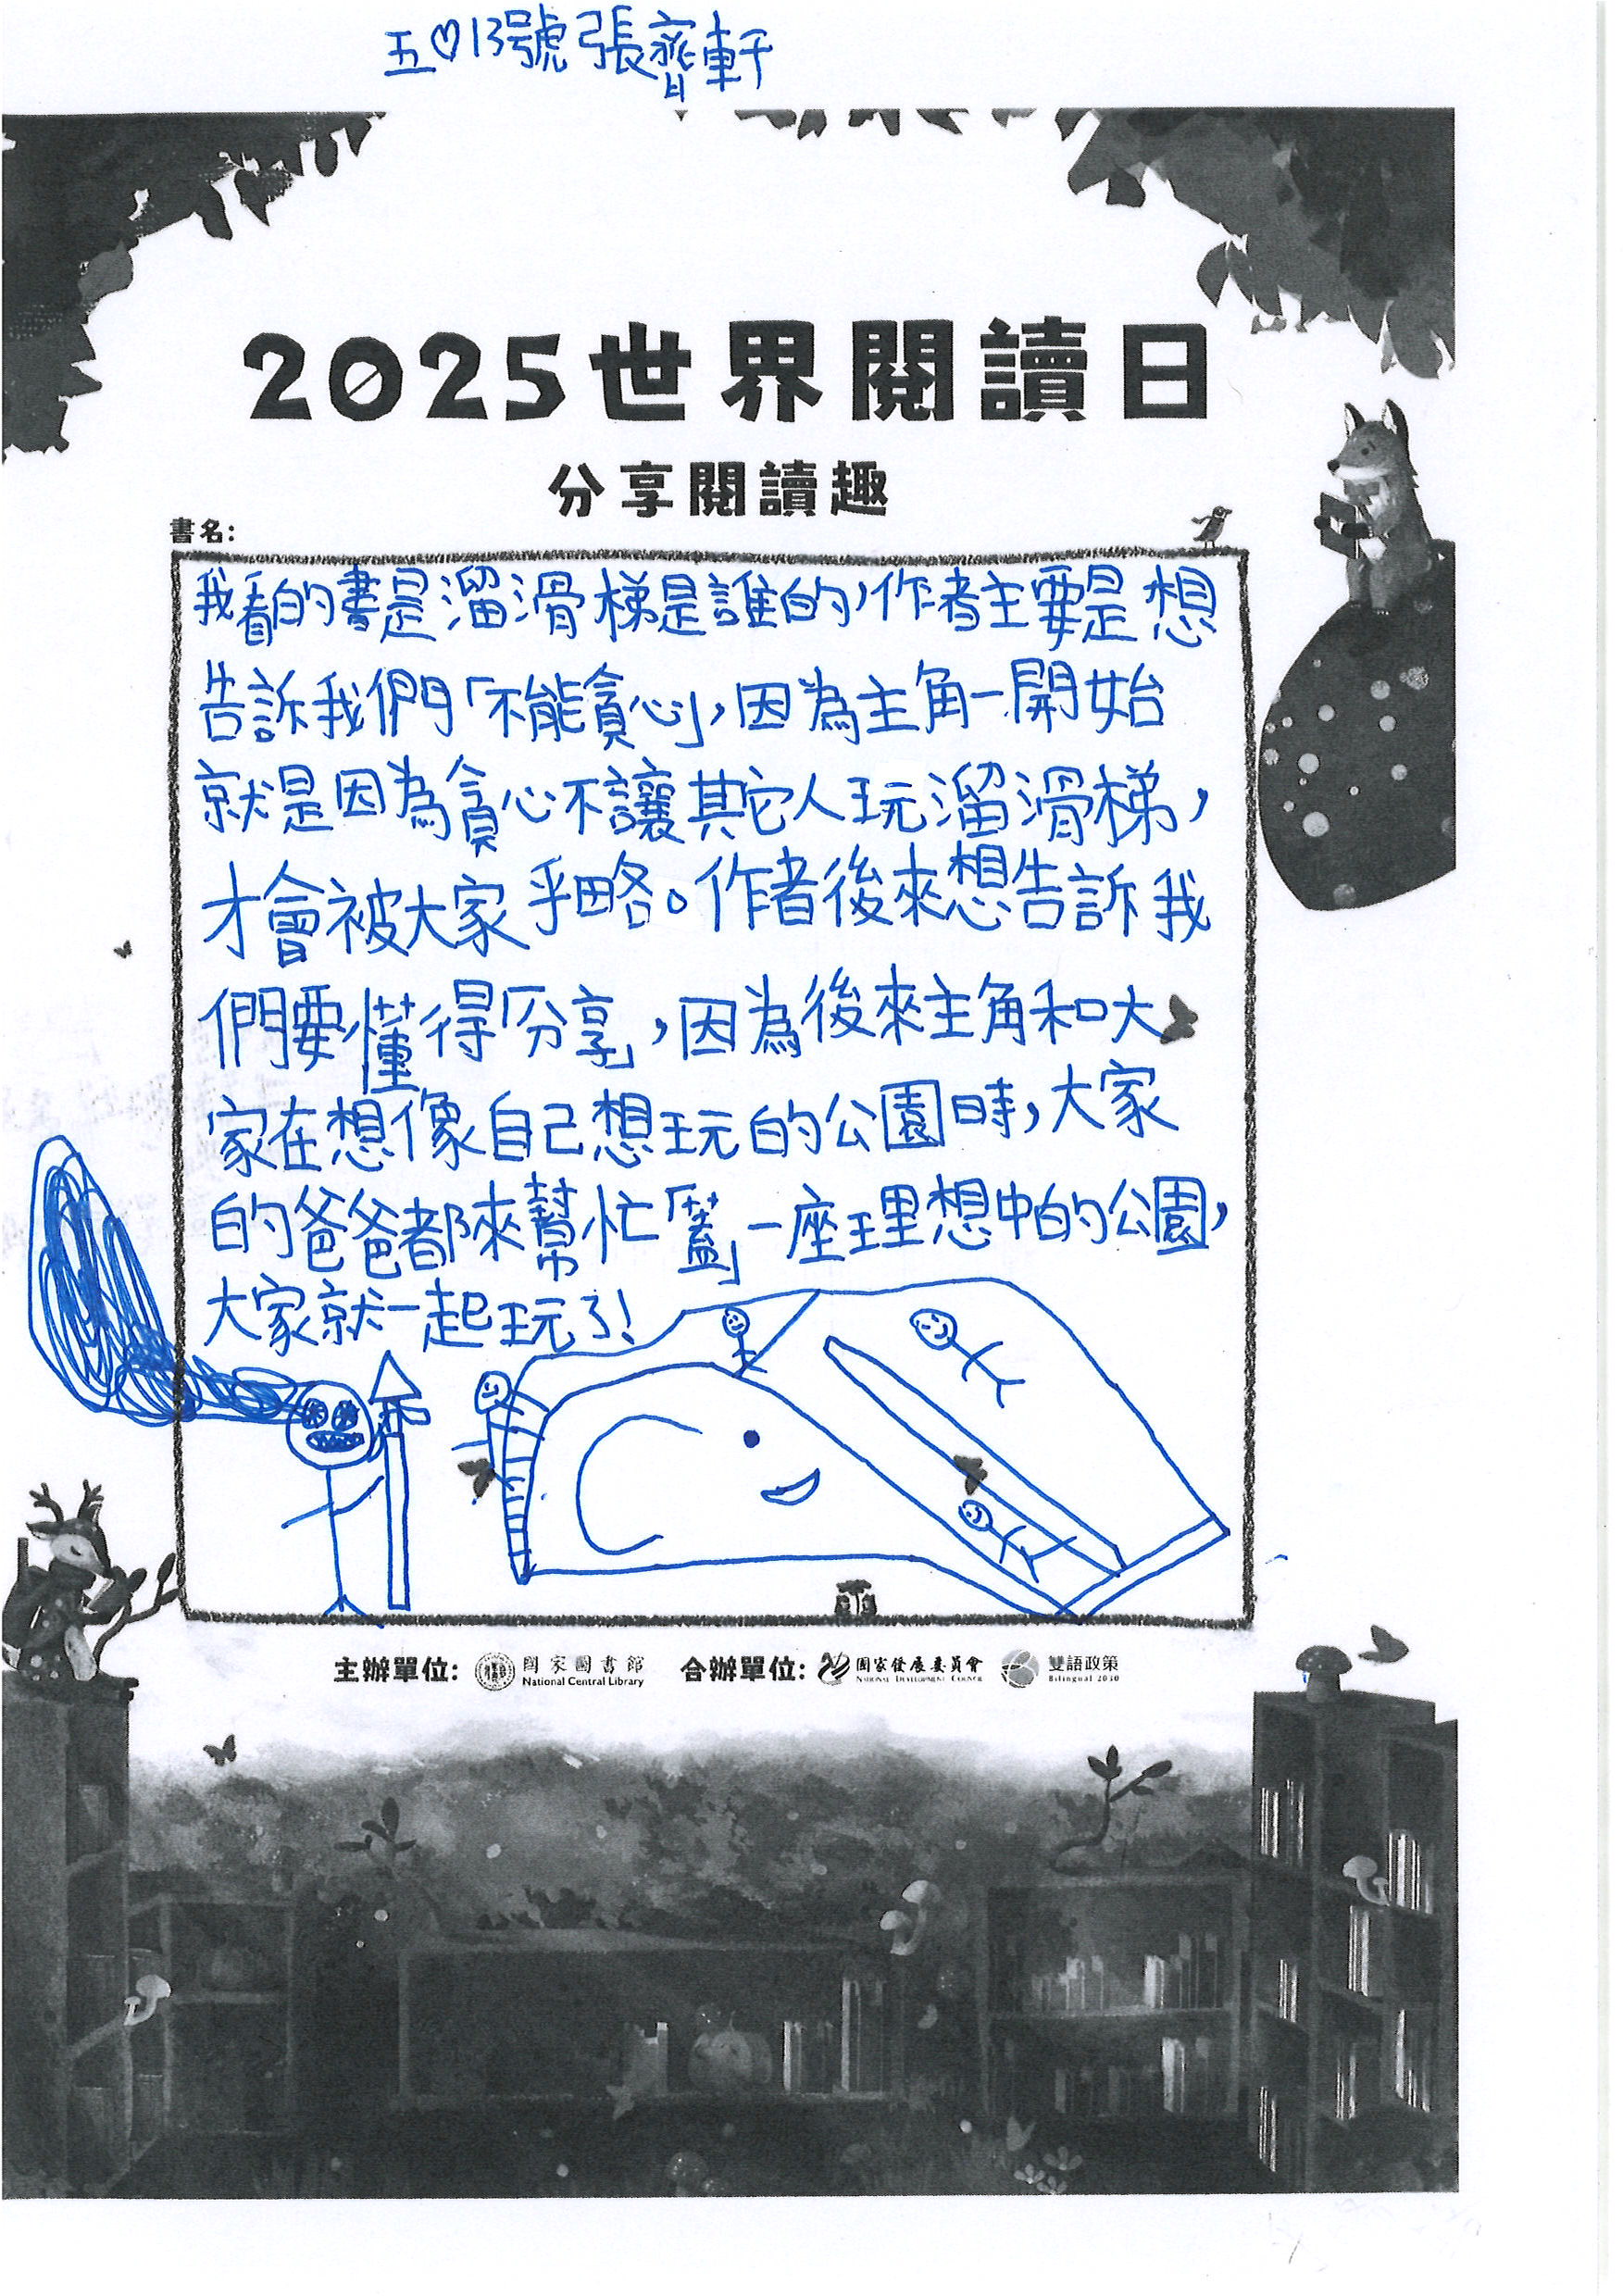 五♡13號張齊軒
2025世界閱讀日
分享閱讀趣
書名:
我看的書是溜滑梯是誰的,作者主要是想
告訴我們「不能貪心」,因為主角一開始
就是因為貪心不讓其它人玩溜滑梯,
才會被大家乎略。作者後來想告訴我
們要懂得「分享」,因為後來主角和大
家在想像自己想玩的公園時,大家
的爸爸都來幫忙「蓋」一座理想中的公園,
大家就一起玩了!
主辦單位: 國家圖書館 National Central Library 合辦單位: 國家發展委員會 National Development Council 雙語政策 Bilingual 2030